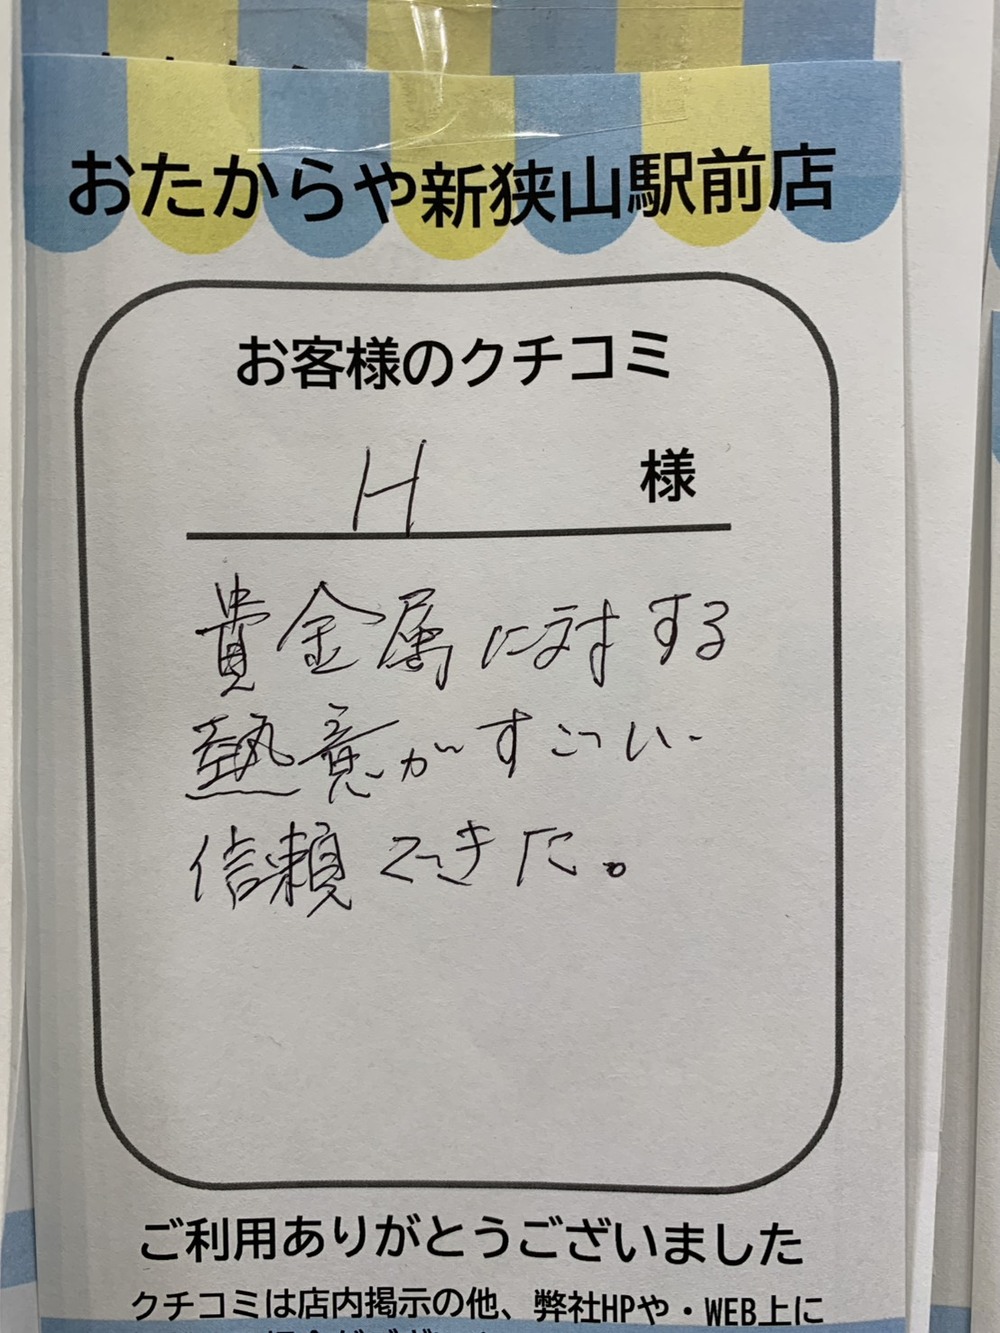 おたからや新狭山駅前店
お客様のクチコミ
H 様
貴金属に対する
熱意がすごい.
信頼できた。
ご利用ありがとうございました
クチコミは店内掲示の他、弊社HPや・WEB上に